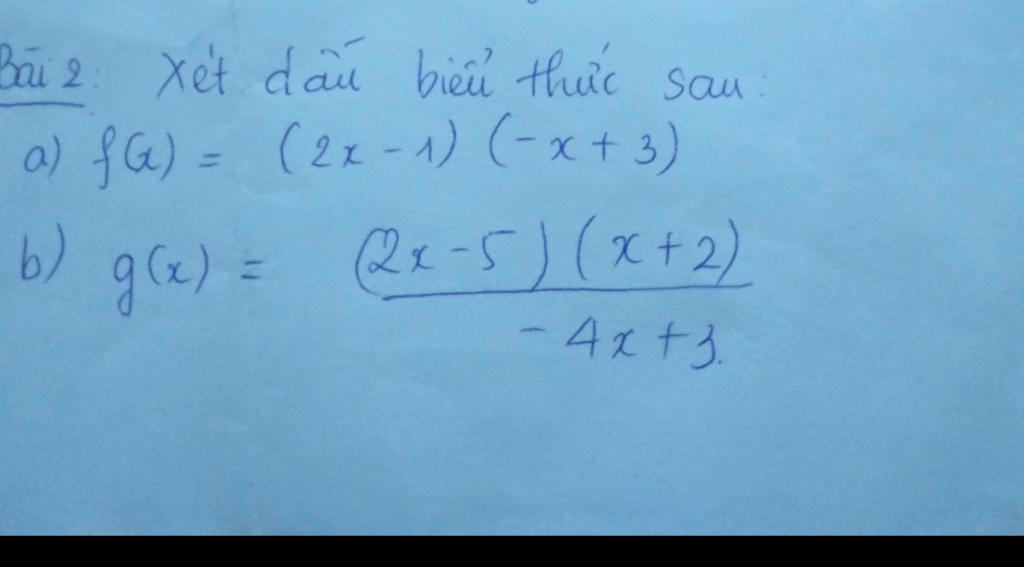 Bài 2: Xét dấu biểu thức sau:
a) f(x) = (2x - 1) (-x + 3)
b) g(x) = (2x - 5) (x + 2)
- 4x + 3.